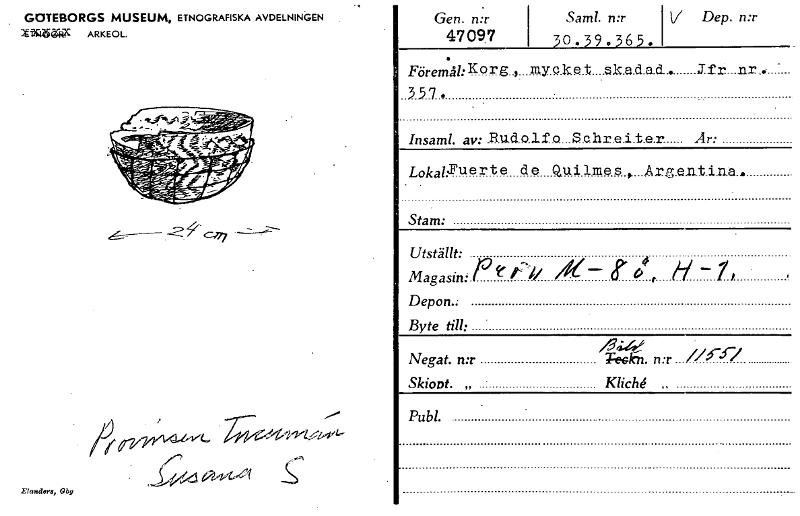 GÖTEBORGS MUSEUM, ETNOGRAFISKA AVDELNINGEN
ARKEOL.
← 24 cm →
Provinsen Tucumán
Susana S
Elanders, Gbg
Gen. n:r Saml. n:r V Dep. n:r
47097 30.39.365.
Föremål: Korg, mycket skadad. Jfr nr.
357.
Insaml. av: Rudolfo Schreiter År:
Lokal: Fuerte de Quilmes, Argentina.
Stam:
Utställt:
Magasin: Perú M-8ö, H-1.
Depon.:
Byte till:
Bild
Negat. n:r Teckn. n:r 11551
Skiopt. „ Kliché „
Publ.